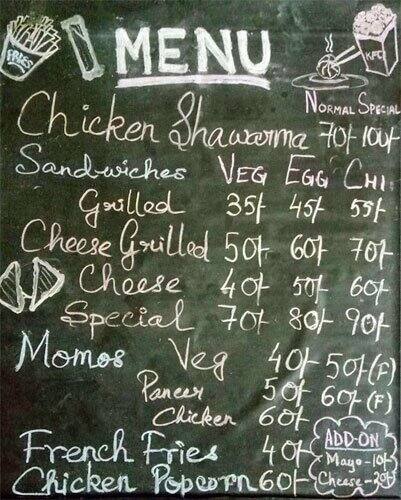 FRIES
MENU
KFC
NORMAL SPECIAL
Chicken Shawarma 70/- 100/-
Sandwiches VEG EGG CHI.
Grilled 35/- 45/- 55/-
Cheese Grilled 50/- 60/- 70/-
Cheese 40/- 50/- 60/-
Special 70/- 80/- 90/-
Momos Veg 40/- 50/-(F)
Paneer 50/- 60/-(F)
Chicken 60/-
French Fries 40/-
Chicken Popcorn 60/-
ADD-ON
Mayo-10/-
Cheese-20/-